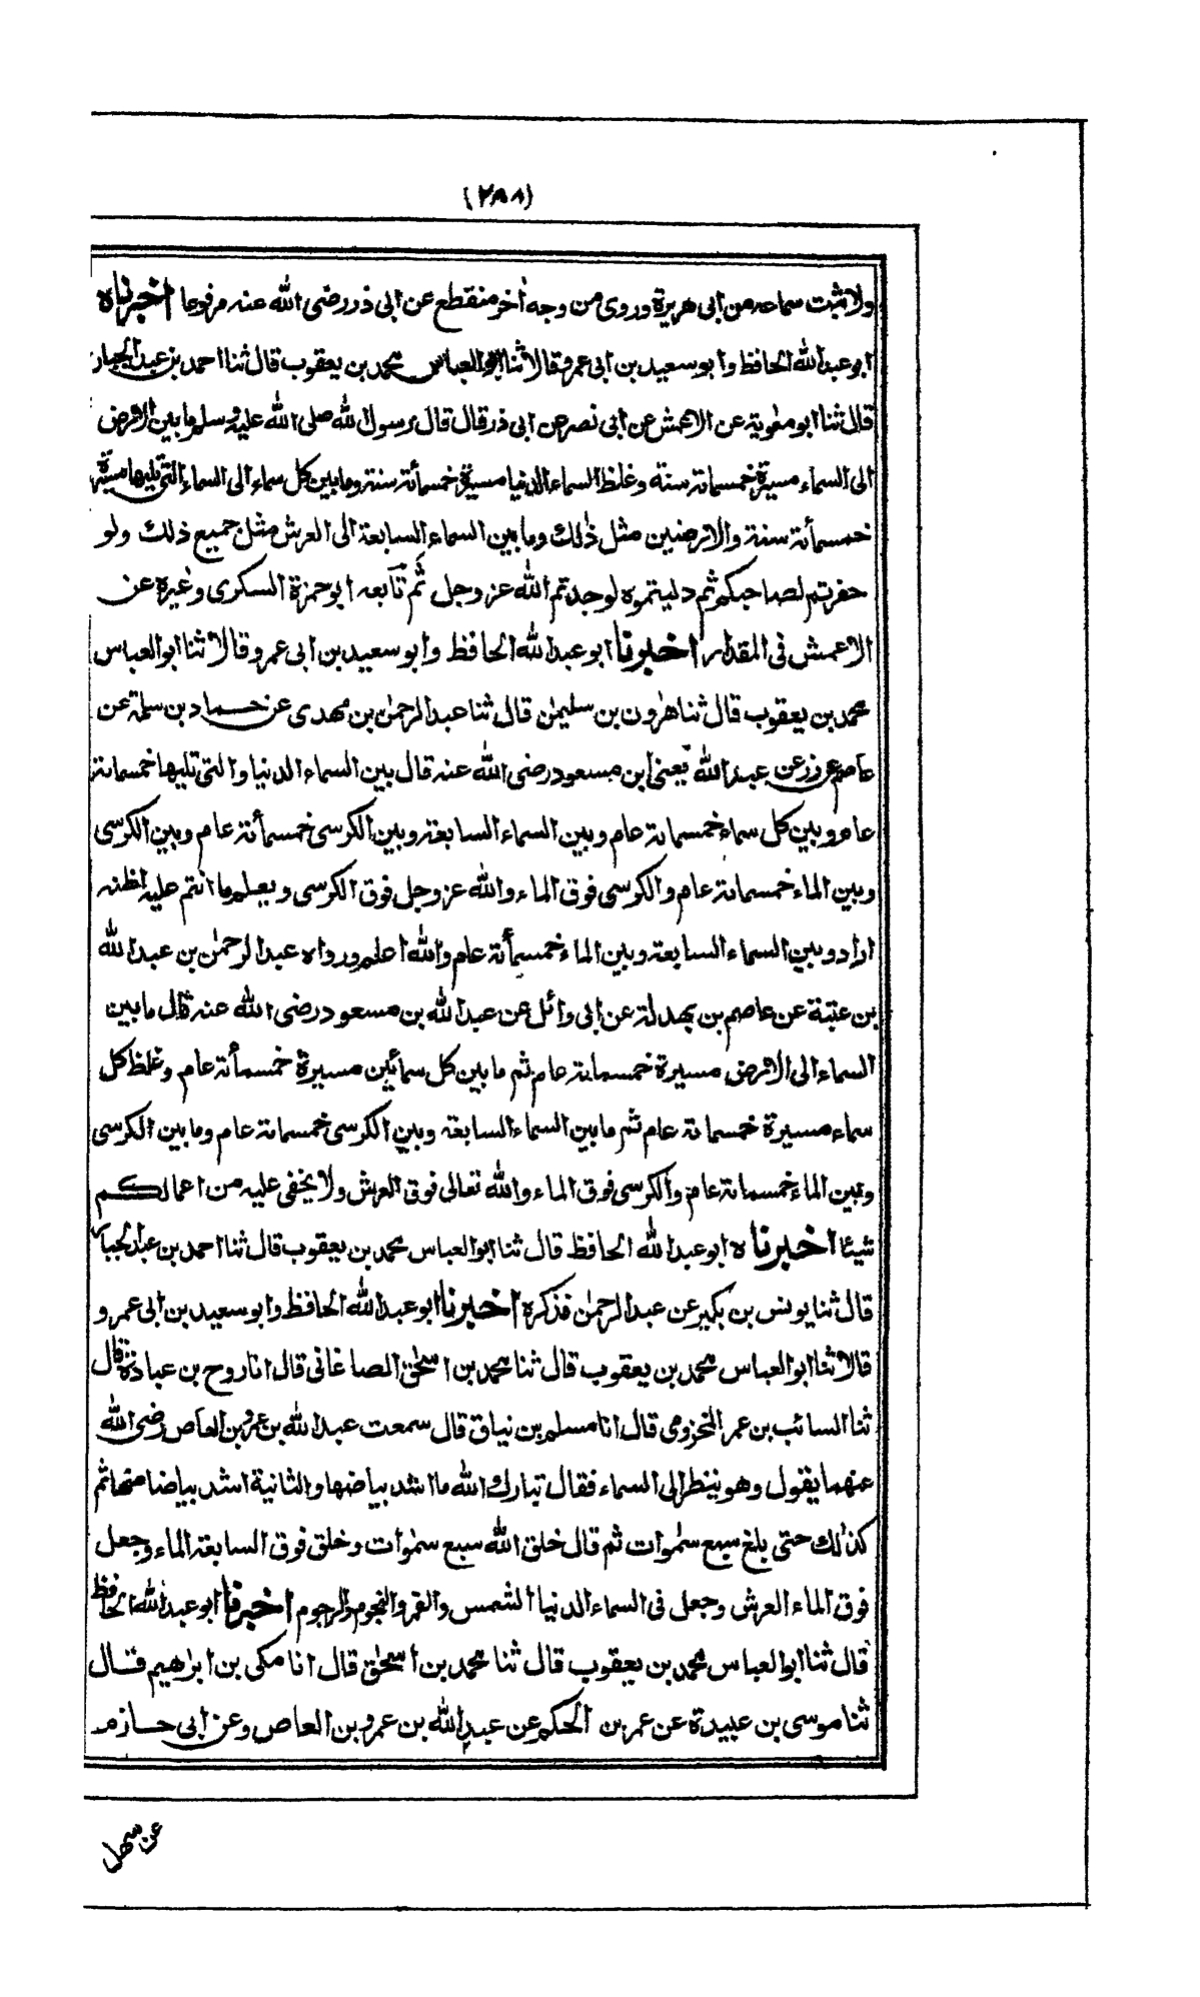 (٢٨٨)
ولا ثبت سماعه من ابى هريرة وروى من وجه أخر منقطع عن ابى ذر رضى الله عنه مرفوعا اخبرناه
ابو عبد الله الحافظ وابو سعيد بن ابى عمرو قالا ثنا ابو العباس محمد بن يعقوب قال ثنا احمد بن عبد الجبار
قال ثنا ابو معوية عن الاعمش عن ابى نصر عن ابى ذر قال قال رسول الله صلى الله عليه وسلم ما بين الارض
الى السماء مسيرة خمسمائة سنة وغلظ السماء الدنيا مسيرة خمسمأئة سنة وما بين كل سماء الى السماء التى تليها مسيرة
خمسمأئة سنة والارضين مثل ذلك وما بين السماء السابعة الى العرش مثل جميع ذلك ولو
حفرتم لصاحبكم ثم دليتموه لوجدتم الله عز وجل ثم تابعه ابو حمزة السكرى وغيره عن
الاعمش فى المقدار اخبرنا ابو عبد الله الحافظ وابو سعيد بن ابى عمرو قالا ثنا ابو العباس
محمد بن يعقوب قال ثنا هرون بن سليمن قال ثنا عبد الرحمن بن مهدى عن حماد بن سلمة عن
عاصم عن زر عن عبد الله يعنى ابن مسعود رضى الله عنه قال بين السماء الدنيا والتى تليها خمسمائة
عام وبين كل سماء خمسمائة عام وبين السماء السابعة وبين الكرسى خمسمأئة عام وبين الكرسى
وبين الماء خمسمائة عام والكرسى فوق الماء والله عز وجل فوق الكرسى ويعلم ما انتم عليه اظنه
اراد وبين السماء السابعة وبين الماء خمسمأئة عام والله اعلم ورواه عبد الرحمن بن عبد الله
بن عتبة عن عاصم بن بهدلة عن ابى وائل عن عبد الله بن مسعود رضى الله عنه قال ما بين
السماء الى الارض مسيرة خمسمائة عام ثم ما بين كل سمائين مسيرة خمسمأئة عام وغلظ كل
سماء مسيرة خمسمائة عام ثم ما بين السماء السابعة وبين الكرسى خمسمائة عام وما بين الكرسى
وبين الماء خمسمائة عام والكرسى فوق الماء والله تعالى فوق العرش ولا يخفى عليه من اعمالكم
شيئا اخبرناه ابو عبد الله الحافظ قال ثنا ابو العباس محمد بن يعقوب قال ثنا احمد بن عبد الجبار
قال ثنا يونس بن بكير عن عبد الرحمن فذكره اخبرنا ابو عبد الله الحافظ وابو سعيد بن ابى عمرو
قالا ثنا ابو العباس محمد بن يعقوب قال ثنا محمد بن اسحق الصاغانى قال انا روح بن عبادة قال
ثنا السائب بن عمر المخزومى قال انا مسلم بن نياق قال سمعت عبد الله بن عمرو بن العاص رضى الله
عنهما يقول وهو ينظر الى السماء فقال تبارك الله ما اشد بياضها والثانية اشد بياضا منها ثم
كذلك حتى بلغ سبع سموات ثم قال خلق الله سبع سموات وخلق فوق السابعة الماء وجعل
فوق الماء العرش وجعل فى السماء الدنيا الشمس والقمر والنجوم والرجوم اخبرنا ابو عبد الله الحافظ
قال ثنا ابو العباس محمد بن يعقوب قال ثنا محمد بن اسحق قال انا مكى بن ابرهيم قال
ثنا موسى بن عبيدة عن عمر بن الحكم عن عبد الله بن عمرو بن العاص وعن ابى حازم
عن سهل